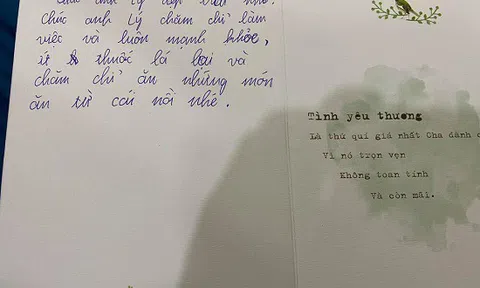 Chúc anh Lý đẹp trai nhé.
Chúc anh Lý chăm chỉ làm
việc và luôn mạnh khỏe,
ít thuốc lá lại và
chăm chỉ ăn những món
ăn từ cái nồi nhé.
Tình yêu thương
Là thứ quí giá nhất Cha dành
Vì nó trọn vẹn
Không toan tính
Và còn mãi.